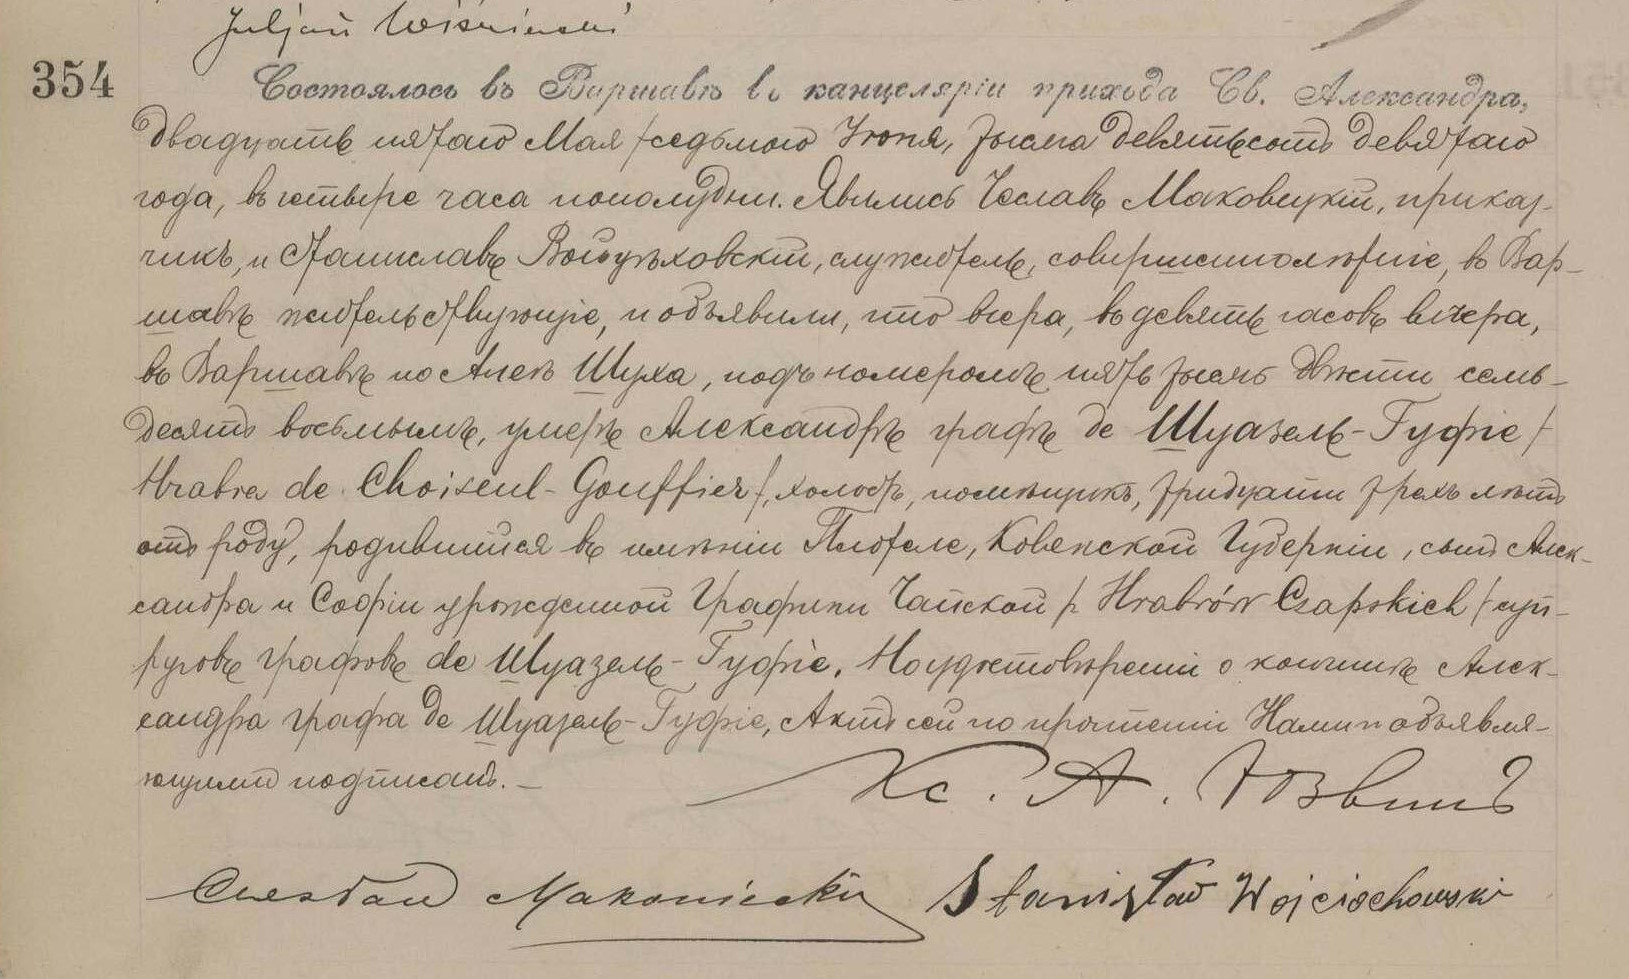 Juljan Wiśniewski
354
Состоялось въ Варшавѣ въ канцеляріи прихода Св. Александра,
двадцать пятаго Мая /седьмого Іюня, тысяча девятьсотъ девятаго
года, въ четыре часа пополудни. Явились Чеславъ Маковецкій, приказ-
чикъ, и Станиславъ Войцѣховскій, служитель, совершеннолѣтніе, въ Вар-
шавѣ жительствующіе, и объявили, что вчера, въ девять часовъ вечера,
въ Варшавѣ по Алеѣ Шуха, подъ номеромъ пять тысячъ двѣсти семь-
десятъ восьмымъ, умеръ Александръ графъ де Шуазель-Гуфіе /
Hrabia de Choiseul-Gouffier/, холостъ, помѣщикъ, тридцати трехъ лѣтъ
отъ роду, родившійся въ имѣніи Плотеле, Ковенской Губерніи, сынъ Алек-
сандра и Софіи урожденной Графини Чапской /z Hrabiów Czapskich/ суп-
руговъ графовъ де Шуазель-Гуфіе. По удостовѣреніи о кончинѣ Алек-
сандра графа де Шуазель-Гуфіе, Актъ сей по прочтеніи Нами и объявля-
ющими подписанъ. —
Кс. А.
Czesław Makowiecki Stanisław Wojciechowski